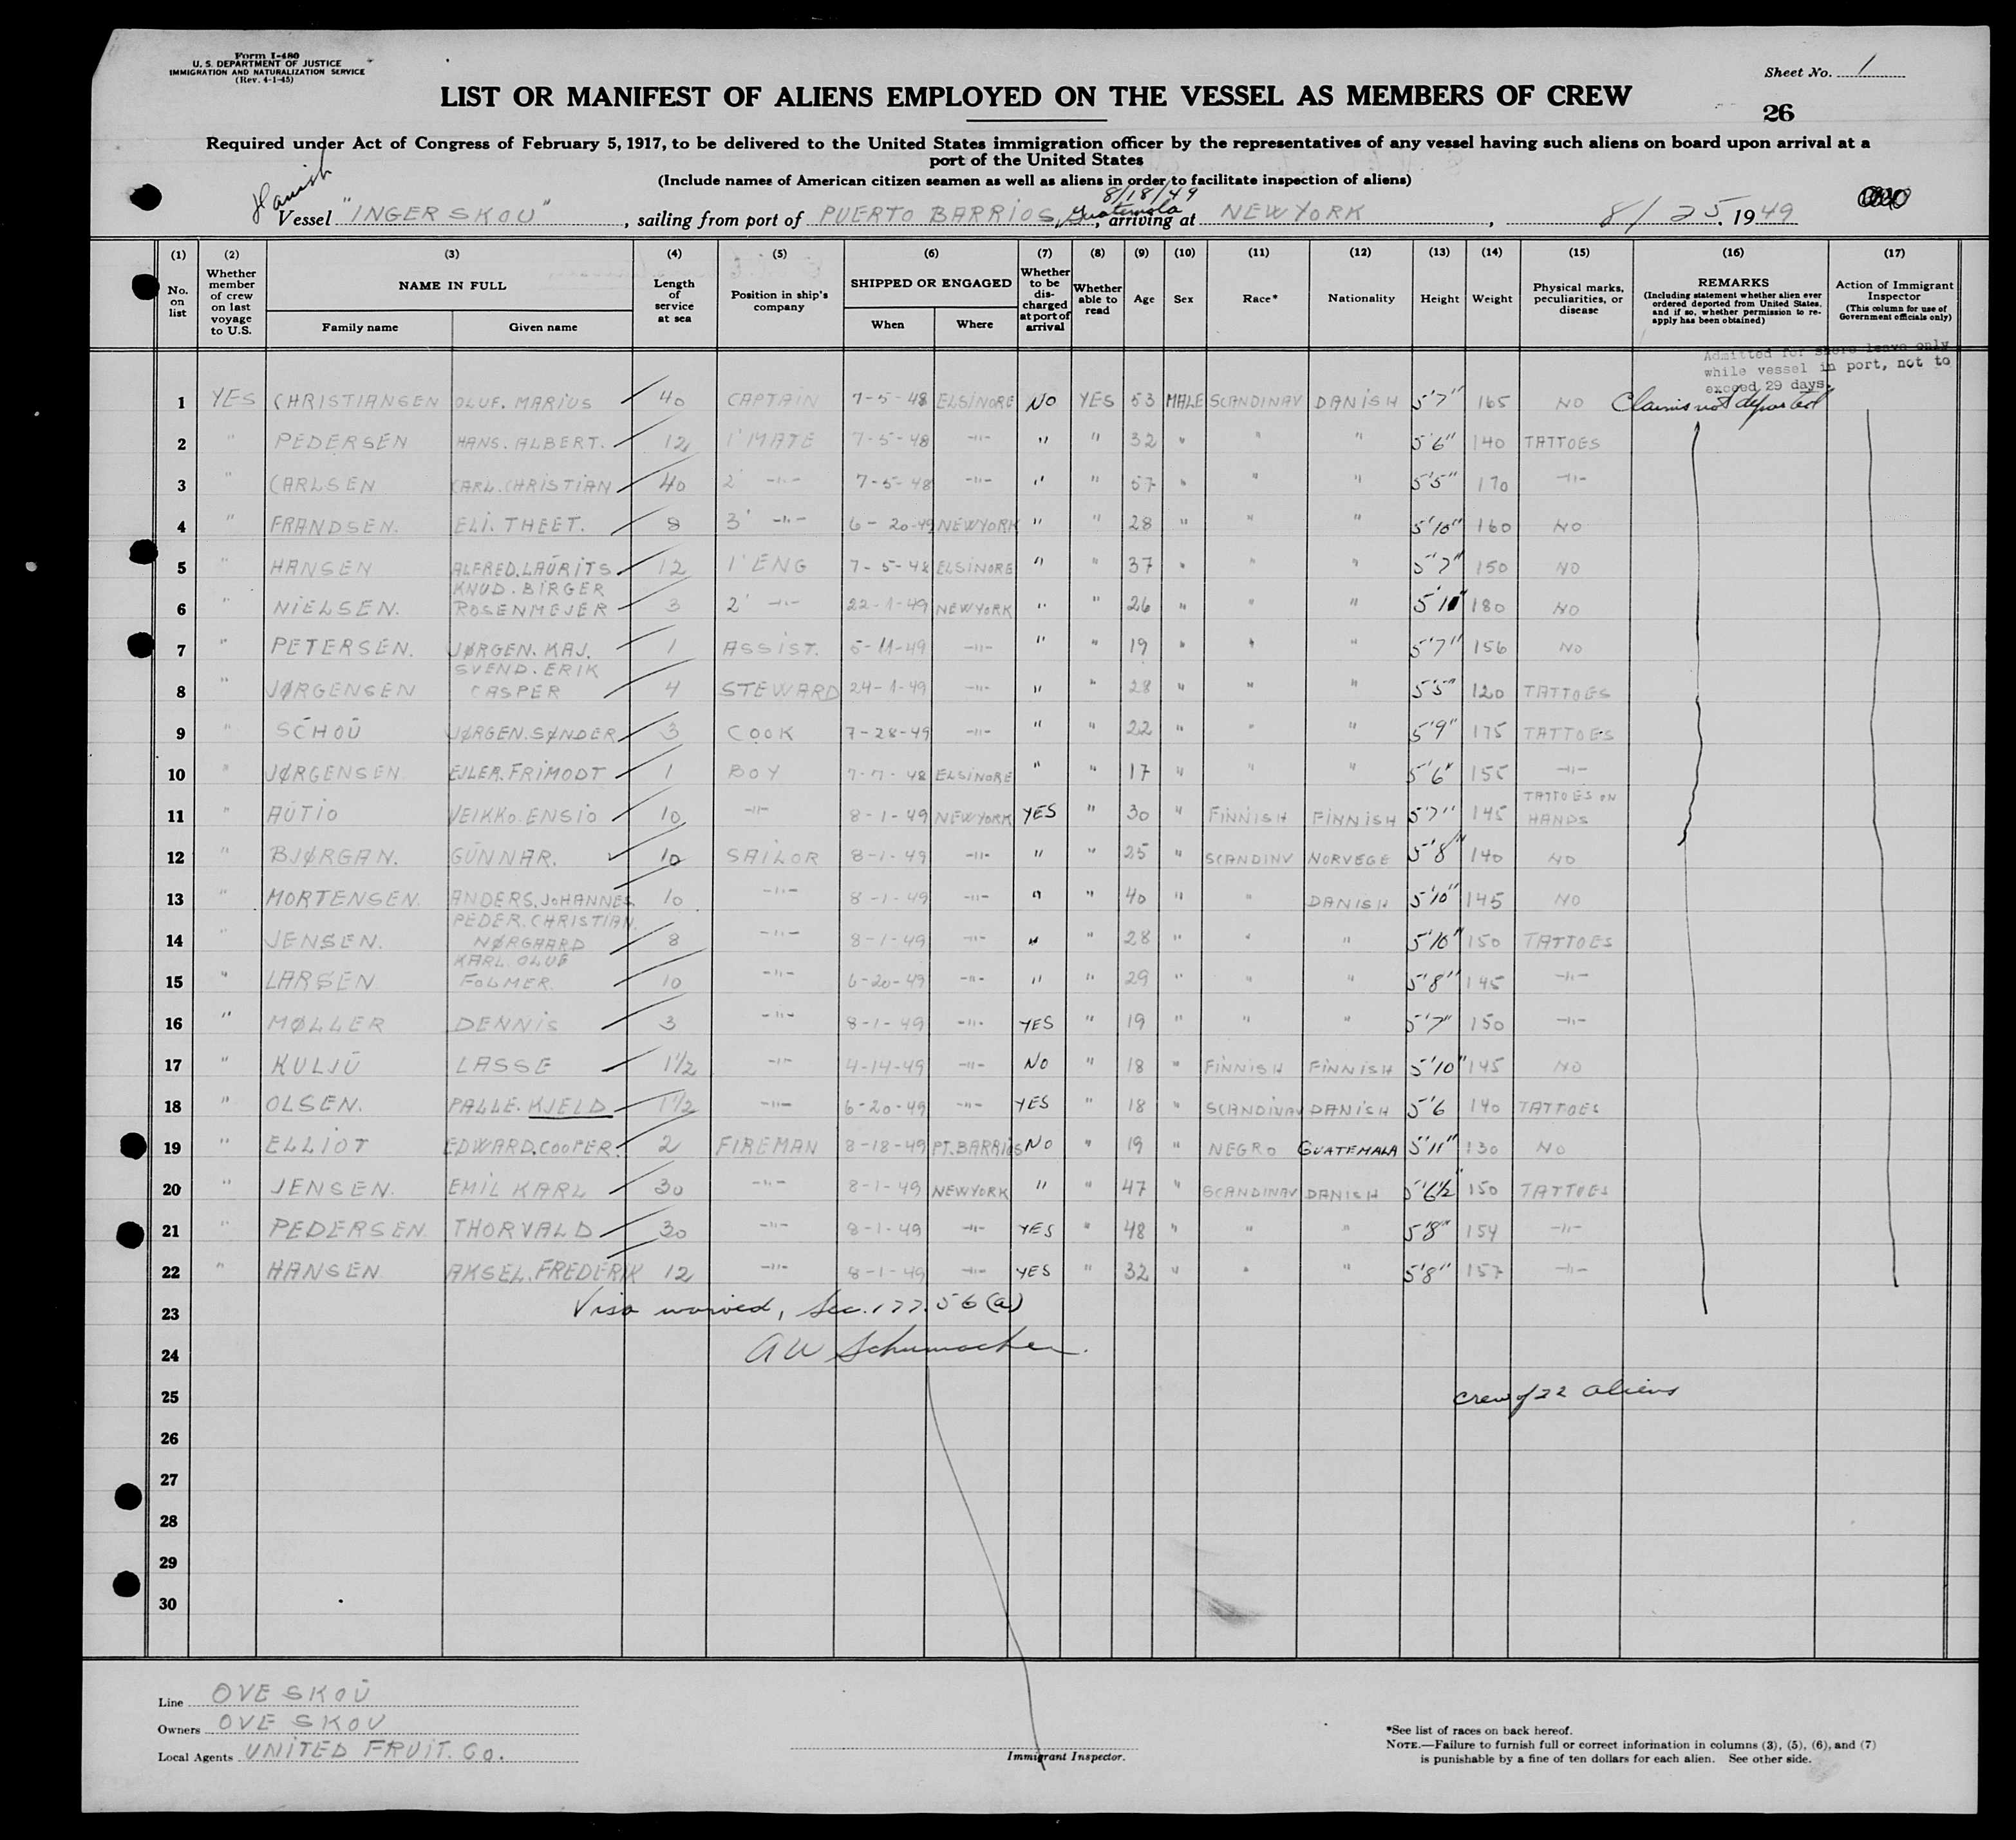 Form I-480
U. S. DEPARTMENT OF JUSTICE
IMMIGRATION AND NATURALIZATION SERVICE
(Rev. 4-1-45)
Sheet No. 1
LIST OR MANIFEST OF ALIENS EMPLOYED ON THE VESSEL AS MEMBERS OF CREW
26
Required under Act of Congress of February 5, 1917, to be delivered to the United States immigration officer by the representatives of any vessel having such aliens on board upon arrival at a
port of the United States
(Include names of American citizen seamen as well as aliens in order to facilitate inspection of aliens)
8/18/49
Vessel "INGER SKOU", sailing from port of PUERTO BARRIOS, Guatemala, arriving at NEW YORK, 8/25, 1949
(1) (2) (3) (4) (5) (6) (7) (8) (9) (10) (11) (12) (13) (14) (15) (16) (17)
No. on list
Whether member of crew on last voyage to U.S.
NAME IN FULL
Family name
Given name
Length of service at sea
Position in ship's company
SHIPPED OR ENGAGED
When
Where
Whether to be discharged at port of arrival
Whether able to read
Age
Sex
Race*
Nationality
Height
Weight
Physical marks, peculiarities, or disease
REMARKS
(Including statement whether alien ever ordered deported from United States, and if so, whether permission to re-apply has been obtained)
Action of Immigrant Inspector
(This column for use of Government officials only)
Admitted for shore leave only
while vessel in port, not to
exceed 29 days.
1 YES CHRISTIANSEN OLUF. MARIUS 40 CAPTAIN 7-5-48 ELSINORE NO YES 53 MALE SCANDINAV DANISH 5'7" 165 NO Claims not deported
2 " PEDERSEN HANS. ALBERT. 12 1' MATE 7-5-48 -"- " " 32 " " " 5'6" 140 TATTOES
3 " CARLSEN CARL. CHRISTIAN 40 2' -"- 7-5-48 -"- " " 57 " " " 5'5" 170 -"-
4 " FRANDSEN. ELI. THEET. 8 3' -"- 6-20-49 NEWYORK " " 28 " " " 5'10" 160 NO
5 " HANSEN ALFRED. LAURITS 12 1' ENG 7-5-48 ELSINORE " " 37 " " " 5'7" 150 NO
6 " NIELSEN. KNUD. BIRGER ROSENMEJER 3 2' -"- 22-1-49 NEWYORK " " 26 " " " 180 NO
7 " PETERSEN. JØRGEN. KAJ. 1 ASSIST. 5-11-49 -"- " " 19 " " " 5'7" 156 NO
8 " JØRGENSEN SVEND. ERIK CASPER 4 STEWARD 24-1-49 -"- " " 28 " " " 5'5" 120 TATTOES
9 " SCHOU JØRGEN. SØNDER 3 COOK 7-28-49 -"- " " 22 " " " 5'9" 175 TATTOES
10 " JØRGENSEN EJLER. FRIMODT 1 BOY 7-7-48 ELSINORE " " 17 " " " 5'6" 155 -"-
11 " AUTIO VEIKKO. ENSIO 10 -"- 8-1-49 NEWYORK YES " 30 " FINNISH FINNISH 5'7" 145 TATTOES ON HANDS
12 " BJØRGAN. GUNNAR. 10 SAILOR 8-1-49 -"- " " 25 " SCANDINV NORVEGE 5'8" 140 NO
13 " MORTENSEN. ANDERS. JOHANNES 10 -"- 8-1-49 -"- " " 40 " " DANISH 5'10" 145 NO
14 " JENSEN. PEDER. CHRISTIAN. NØRGAARD 8 -"- 8-1-49 -"- " " 28 " " " 5'10" 150 TATTOES
15 " LARSEN KARL OLUF FOLMER. 10 -"- 6-20-49 -"- " " 29 " " " 5'8" 145 -"-
16 " MØLLER DENNIS 3 -"- 8-1-49 -"- YES " 19 " " " 5'7" 150 -"-
17 " KULJU LASSE 1½ -"- 4-14-49 -"- NO " 18 " FINNISH FINNISH 5'10" 145 NO
18 " OLSEN. PALLE. KJELD 1½ -"- 6-20-49 -"- YES " 18 " SCANDINAV DANISH 5'6 140 TATTOES
19 " ELLIOT EDWARD. COOPER. 2 FIREMAN 8-18-49 PT. BARRIOS NO " 19 " NEGRO GUATEMALA 5'11" 130 NO
20 " JENSEN. EMIL KARL 30 -"- 8-1-49 NEWYORK " " 47 " SCANDINAV DANISH 5'6½" 150 TATTOES
21 " PEDERSEN THORVALD 30 -"- 8-1-49 -"- YES " 48 " " " 5'8" 154 -"-
22 " HANSEN AKSEL. FREDERIK 12 -"- 8-1-49 -"- YES " 32 " " " 5'8" 157 -"-
23 Visa waived, Sec. 177.56(a)
24 A W Schumacher.
25 Crew of 22 aliens
26
27
28
29
30
Line OVE SKOU
Owners OVE SKOU
Local Agents UNITED FRUIT. Co.
Immigrant Inspector.
*See list of races on back hereof.
NOTE.—Failure to furnish full or correct information in columns (3), (5), (6), and (7)
is punishable by a fine of ten dollars for each alien. See other side.